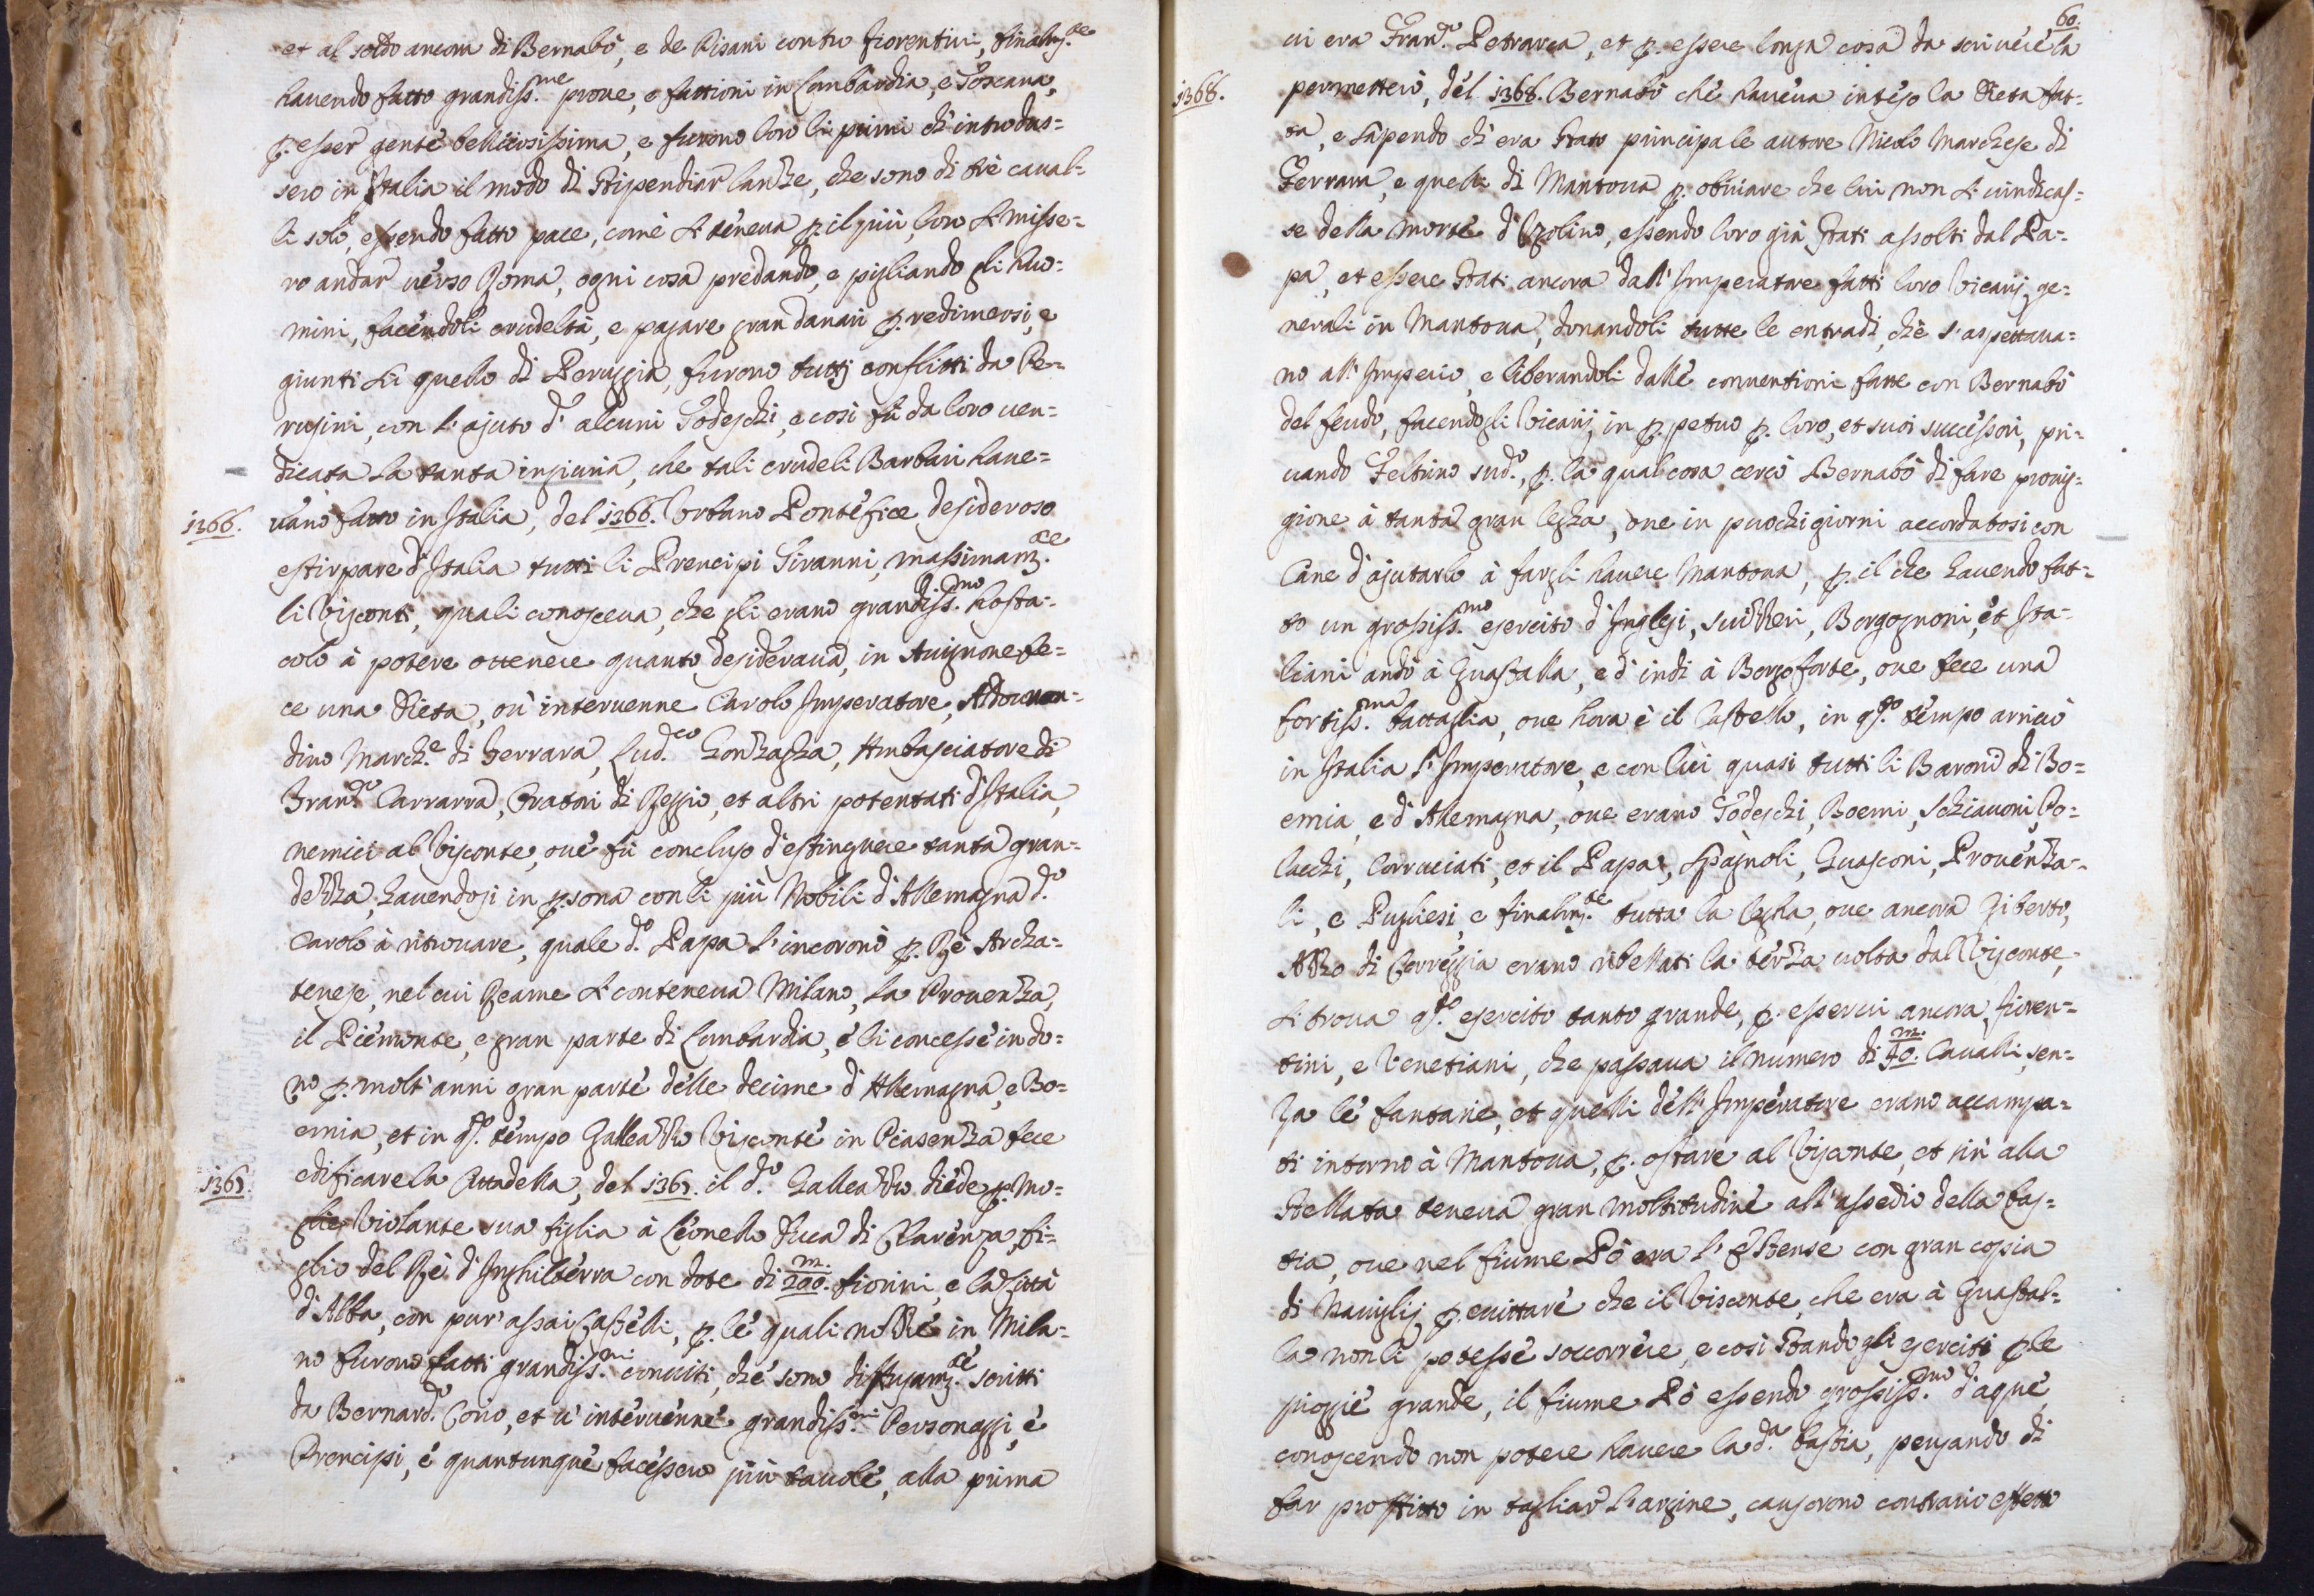 et al soldo ancora di Bernabò, e de Pisani contro fiorentini, finalm.te
havendo fatto grandiss.me prove, e fattioni in Lombardia, e Toscana,
p. esser gente bellicosissima, e furono loro li primi ch' introdus=
sero in Italia il modo di stipendiar lanze, che sono di trè caval=
li solo, essendo fatto pace, come si teneva p. il più, loro si misse=
ro andar verso Roma, ogni cosa predando, e pigliando gli huo=
mini, facendoli crudeltà, e pagare gran danari p. redimersi, e
giunti su quello di Peruggia, furono tutti conflitti da Pe=
rugini, con l' ajuto d' alcuni Todeschi, e così fù da loro ven=
dicata la tanta ingiuria, che tali crudeli Barbari have=
1366. vano fatto in Italia, del 1366. Urbano Pontefice desideroso
estirpare d' Italia tutti li Prencipi Tiranni, massimam.te
li Visconti, quali conosceva, che gli erano grandiss.mo hosta=
colo à potere ottenere quanto desiderava, in Avignone fe=
ce una Dieta, où intervenne Carolo Imperatore, Aldovran=
dino March.e di Ferrara, Lud.co Gonzagha, Ambasciatore di
Fran.co Carrarra, Oratori di Reggio, et altri potentati d' Italia,
nemici al Visconte, ove fù concluso d' estinguere tanta gran=
dezza, havendosi in p.sona con li più Nobili d' Allemagna d.o
Carolo à ritrovare, quale d.o Papa l' incoronò p. Rè Arcla=
tenese, nel cui Reame si conteneva Milano, la Provenza,
il Piemonte, e gran parte di Lombardia, è li concesse in do=
no p. molt' anni gran parte delle decime d' Allemagna, e Bo=
emia, et in q.to tempo Galleazzo Visconte in Piasenza fece
1367. edificare la Cittadella, del 1367. il d.o Galleazzo diede p. Mo=
glie Violante sua figlia à Leonello Duca di Clarenza, fi=
glio del Rè d' Inghilterra con dote di 200.m fiorini, e la città
d' Alba, con pur' assai Castelli, p. le quali nozze in Mila=
no furono fatti grandiss.mi conviti, che sono diffusam.te scritti
da Bernard.o Corio, et v' intervenne grandiss.mi Personaggi, è
Prencipi, è quantunque facessero più tavole, alla prima
60.
vi era Fran.co Petrarca, et p. essere longa cosa da scrivere la
1368. permetterò, del 1368. Bernabò che haveva inteso la Dieta fat=
ta, e sapendo ch' era stato principale autore Nicolo Marchese di
Ferrara, e quelli di Mantova p. obviare che lui non si vindicas=
se della morte d' Ugolino, essendo loro già stati assolti dal Pa=
pa, et essere stati ancora dall' Imperatore fatti loro Vicarij ge=
nerali in Mantova, donandoli tutte le entradi, che s' aspettava=
no all' Imperio, e liberandoli dalle conventioni fatte con Bernabò
del feudo, facendogli Vicarij in p.petuo p. loro, et suoi successori, pri=
vando Feltrino sud.o, p. la qual cosa cercò Bernabò di fare provig=
gione à tanta gran legha, ove in puochi giorni accordatosi con
Cane d' ajutarlo à fargli havere Mantova, p. il che havendo fat=
to un grossiss.mo esercito d' Inglesi, Suizzeri, Borgognoni, et Ita=
liani andò à Guastalla, e d' indi à Borgoforte, ove fece una
fortiss.ma battaglia, ove hora è il Castello, in q.to tempo arrivò
in Italia l' Imperatore, e con lui quasi tutti li Baroni di Bo=
emia, e d' Allemagna, ove erano Todeschi, Boemi, Schiavoni, Po=
lacchi, Corruciati, et il Papa, Spagnoli, Guasconi, Provenza=
li, e Pugliesi, e finalm.te tutta la legha, ove ancora Giberto,
Azzo di Correggia erano ribellati la terza volta dal Visconte,
si trova q.to esercito tanto grande, p. esservi ancora fioren=
tini, e Venetiani, che passava il numero di 40.m Cavalli, sen=
za le fantarie, et quelli dell' Imperatore erano accampa=
ti intorno à Mantova, p. ostare al Visconte, et sin' alla
Stellata teneva gran moltitudine all' assedio della bas=
tia, ove nel fiume Pò era l' Estense con gran copia
di Naviglij p. evittare che il Visconte, che era à Guastal=
la non li potesse soccorrere, e così stando gli eserciti p. le
pioggie grande, il fiume Pò essendo grossiss.mo d' aque,
conoscendo non potere havere la d.a bastia, pensando di
far profitto in tagliar l' argine, causorono contrario effetto